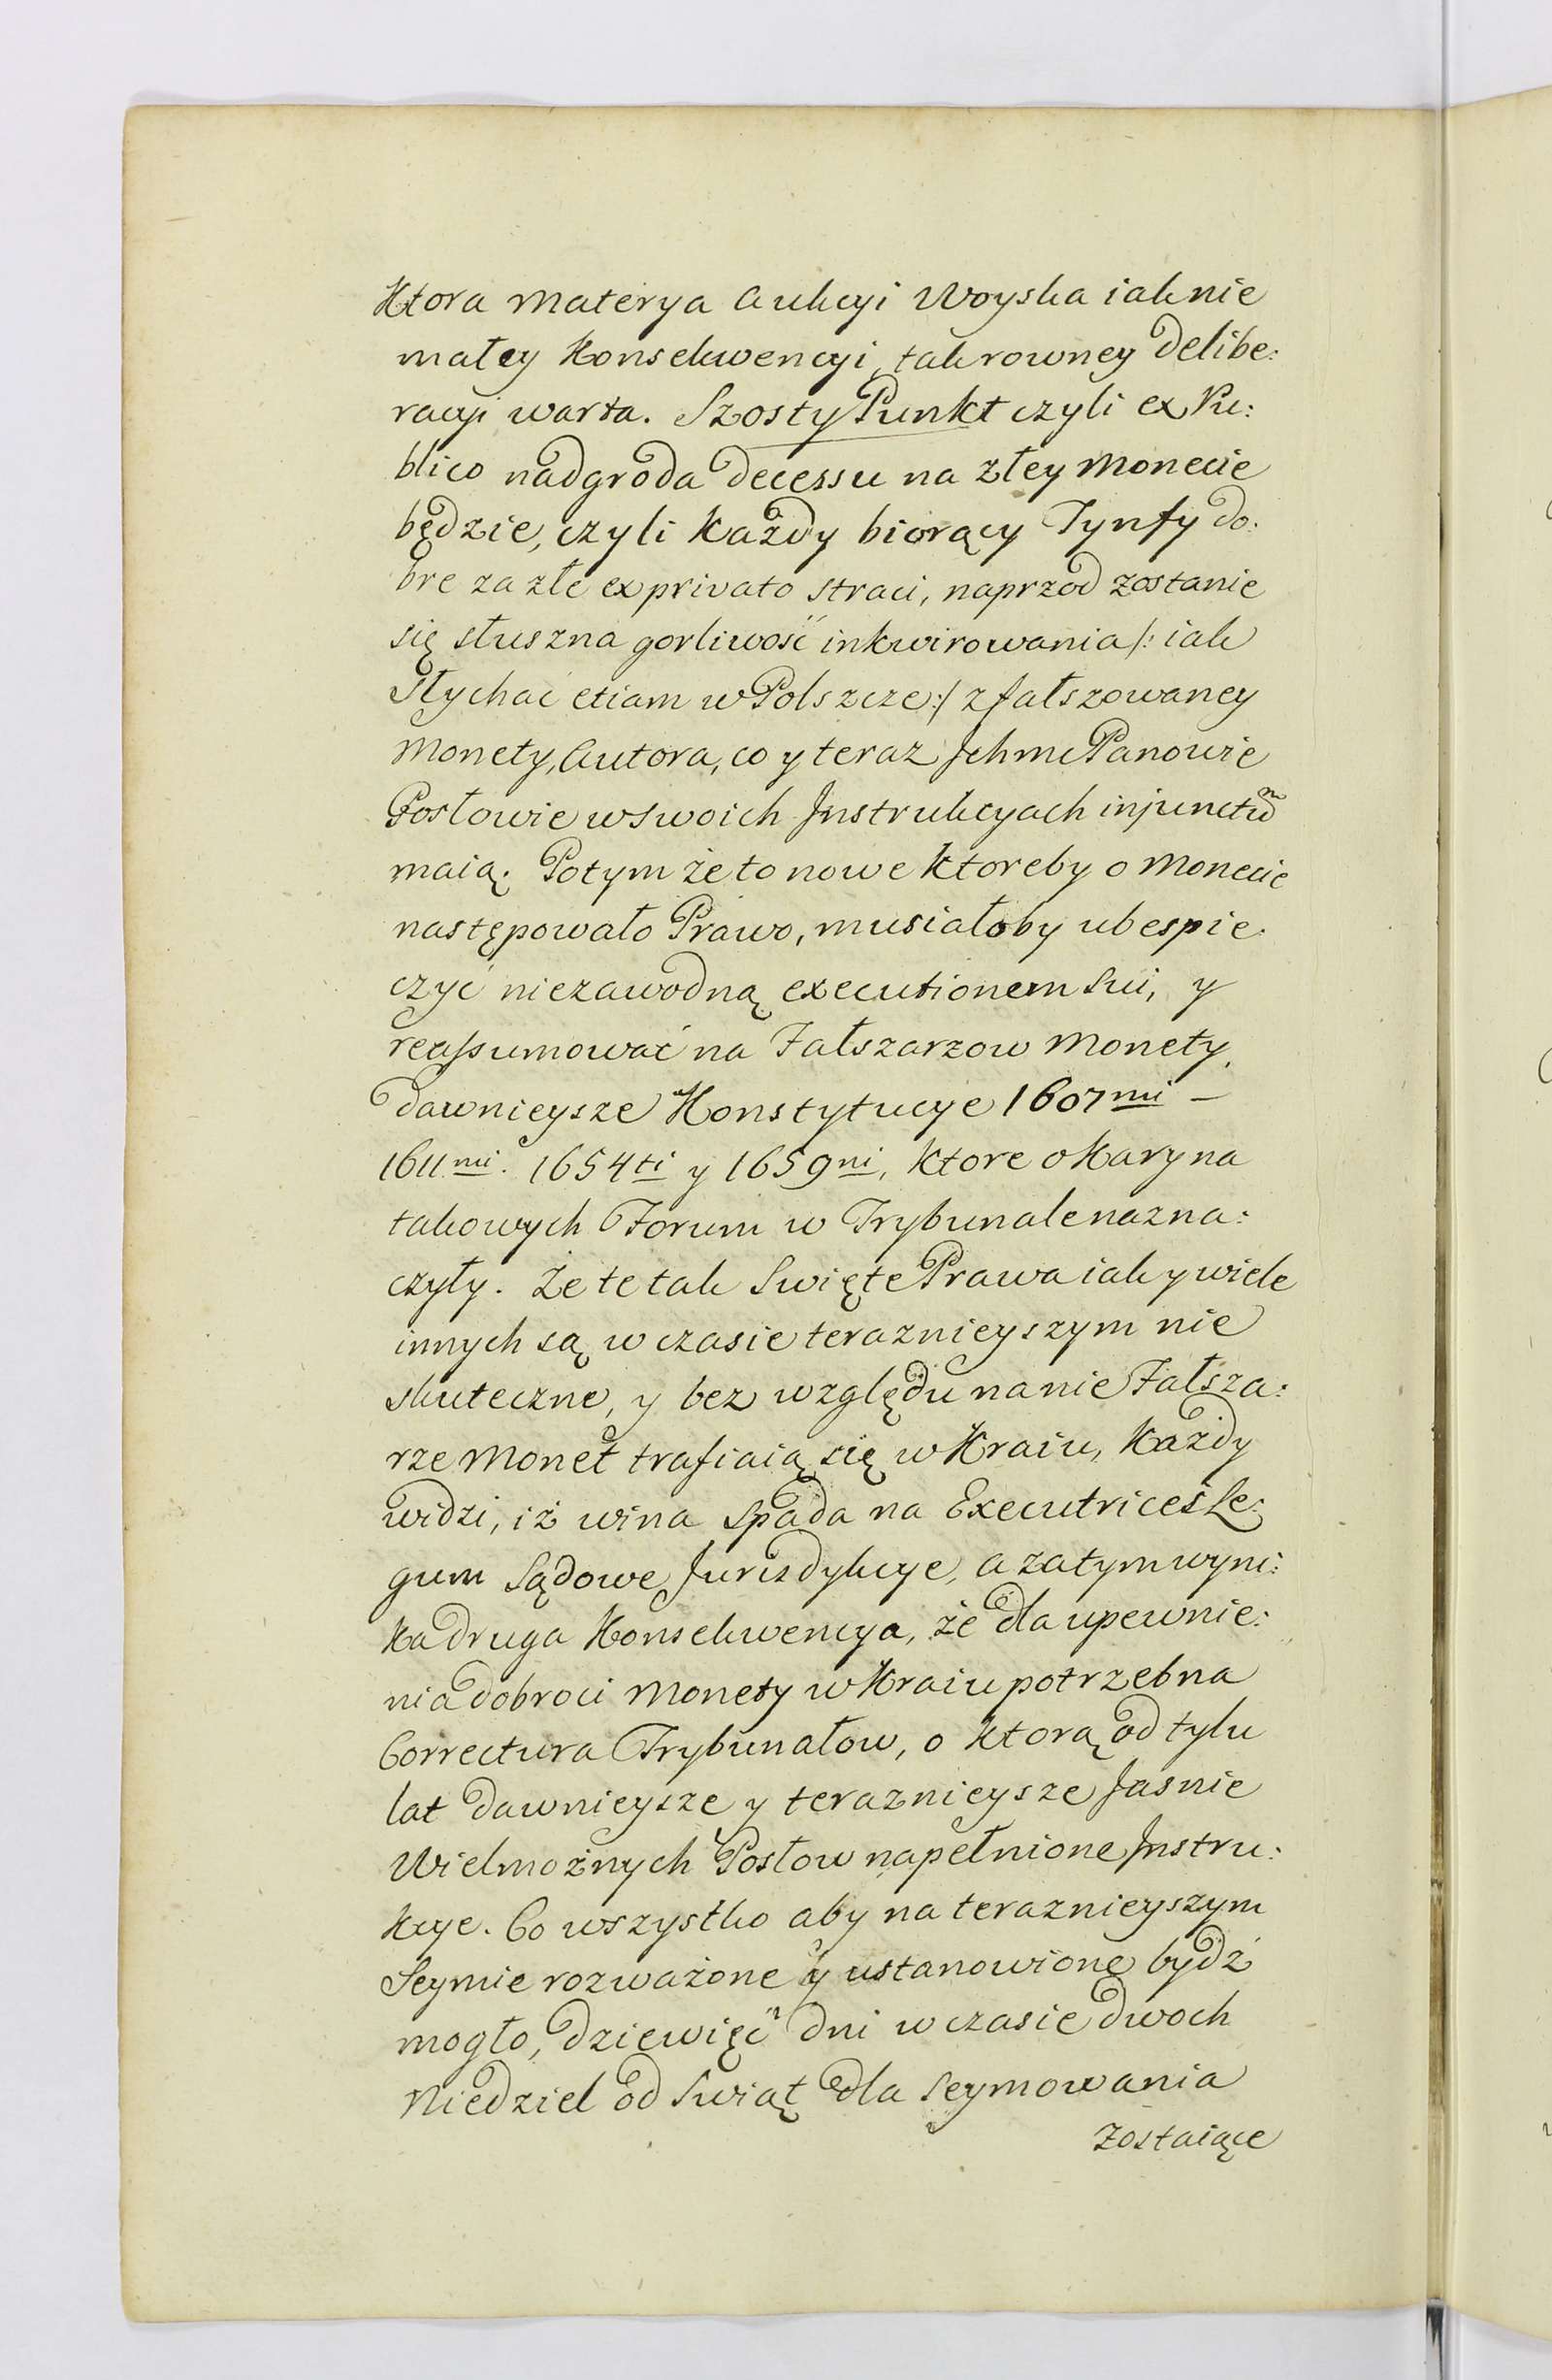 Ktora Materya Aukcyi Woyska iak nie
małey Konsekwencyi, tak rowney Delibe:
racyi warta. Szosty Punkt czyli ex Pu:
blico nadgroda Decessu na złey Monecie
będzie, czyli Każdy biorący Tynfy do:
bre za złe ex privato straci, naprzod zostanie
się słuszna gorliwość inkwirowania /: iak
Słychać etiam w Polszcze :/ zfałszowaney
Monety, Autora, co y teraz Jchmc Panowie
Posłowie w swoich Jnstrukcyach injunctũ
maią. Potym że to nowe Ktoreby o Monecie
następowało Prawo, musiałoby ubespie:
czyć niezawodną executionem sui, y
reassumować na Fałszarzow Monety,
Dawnieysze Konstytucye 1607mi –
1611mi. 1654ti y 1659ni, Ktore o Kary na
takowych Forum w Trybunale nazna:
czyły. Że te tak Swięte Prawa iak y wiele
innych są w czasie teraznieyszym nie
skuteczne, y bez względu na nie Fałsza:
rze Monet trafiaią się w Kraiu, Każdy
widzi, iż wina spada na Executrices Le:
gum Sądowe Jurisdykcye, a zatym wyni:
Ka druga Konsekwencya, że dla upewnie:
nia dobroci Monety w Kraiu potrzebna
Correctura Trybunałow, o Ktorą od tylu
lat dawnieysze y teraznieysze Jasnie
Wielmożnych Posłow napełnione Jnstru:
Kcye. Co wszystko aby na teraznieyszym
Seymie rozważone y ustanowione bydź
mogło, dziewięć dni w czasie dwoch
Niedziel od Swiąt dla Seymowania
zostaiące